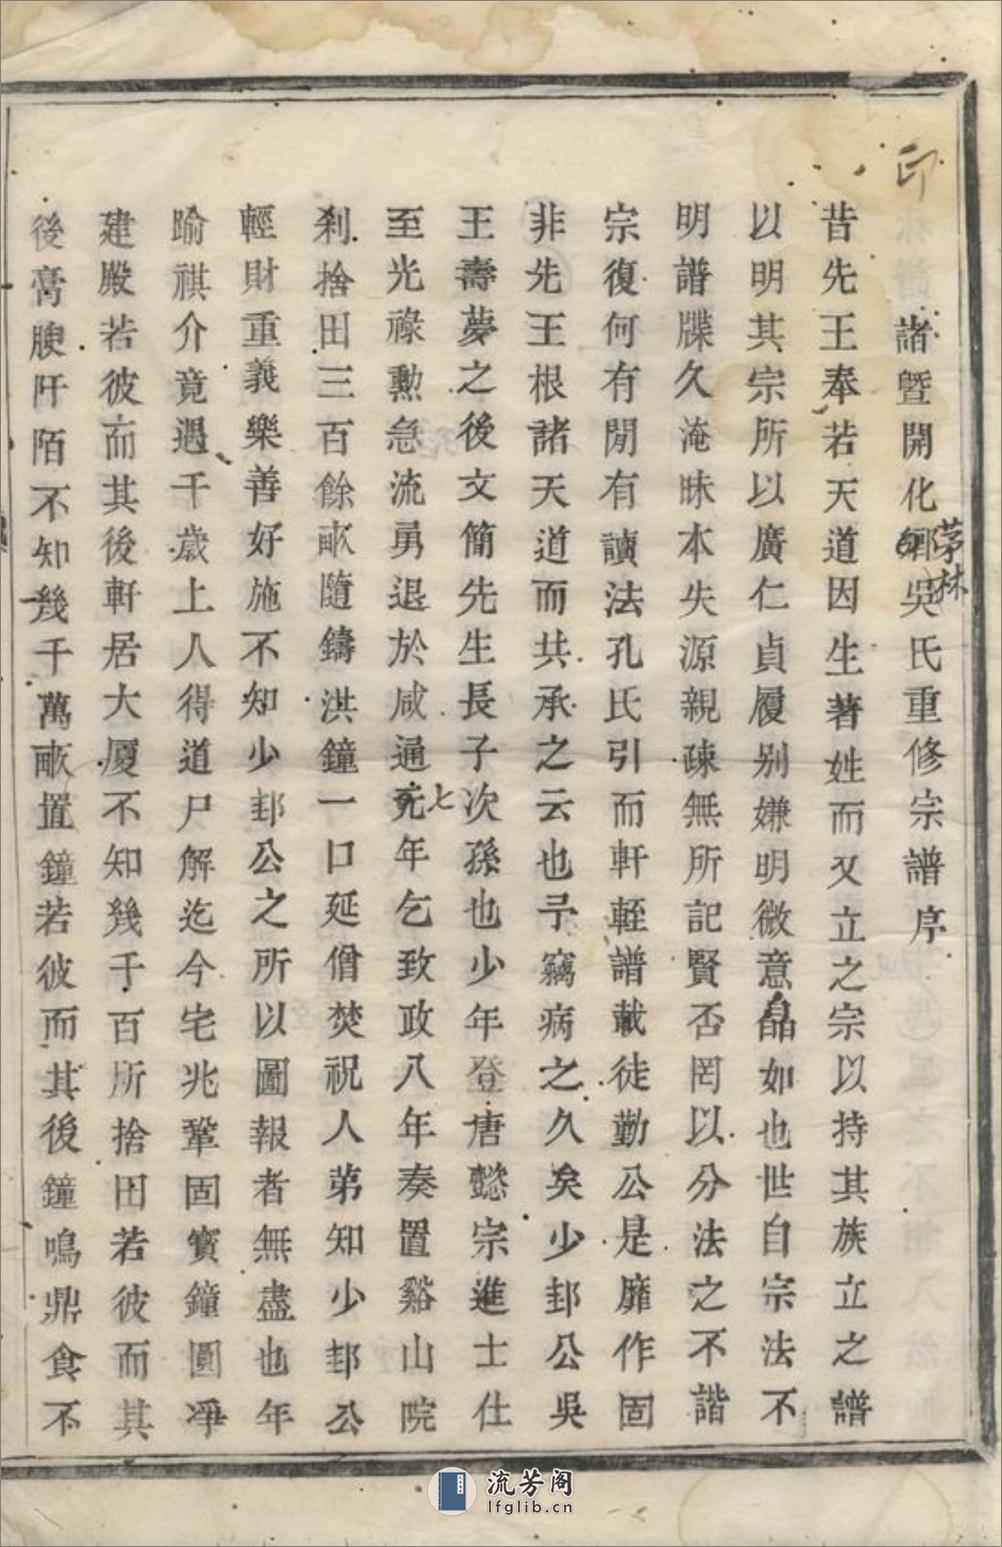 印
諸暨開化鄉吳氏重修宗譜序
茅林
昔先王奉若天道因生著姓而又立之宗以持其族立之譜
以明其宗所以廣仁貞履别嫌明微意晶如也世自宗法不
明譜牒久淹昧本失源親疎無所記賢否罔以分法之不諧
宗復何有閒有讀法孔氏引而軒輊譜載徒勤公是靡作固
非先王根諸天道而共承之云也予竊病之久矣少邽公吳
王壽夢之後文簡先生長子次孫也少年登唐懿宗進士仕
至光祿勳急流勇退於咸通元年乞致政八年奏置谿山院
七
刹捨田三百餘畝隨鑄洪鐘一口延僧焚祝人第知少邽公
輕財重義樂善好施不知少邽公之所以圖報者無盡也年
踰祺介竟遇千歲上人得道尸解迄今宅兆鞏固實鐘圓凈
建殿若彼而其後軒居大厦不知幾千百所捨田若彼而其
後膏腴阡陌不知幾千萬畝置鐘若彼而其後鐘鳴鼎食不
流芳阁
lfglib.cn